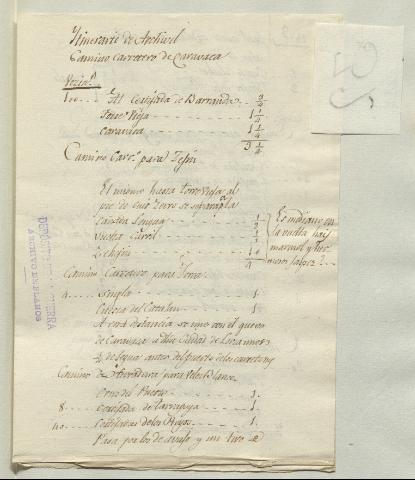 Ytinerario de Archivel
Camino Carretero de Caravaca
Vecin.s
100 Al Cortijada de Barranda 3/4
Torre Vieja 1 1/4
Caravaca 1 1/4
3 1/4
Camino Carr.o para
El mismo hasta Torre Vieja al
pie de cuio Zerro se separa p.a la
1/2
Carril
1 1/4
4
Es mediano en
la vuelta hay
marmol y
Camino Carretero para Lorca
4 Singla 1
del Catalan 1
A corta distancia se une con el que va
de Caravaca a dha Ciudad de Lorca unos
3/4 de legua antes del puerto de las carretas
Camino de Herradura para Velez Blanco
del Puerto 1
8 Cortijada de Tarragoya 1
40 Cortijadas de los Royos 1
Pasa por los de abajo y un tiro de
DEPOSITO DE LA GUERRA
ARCHIVO DE PLANOS